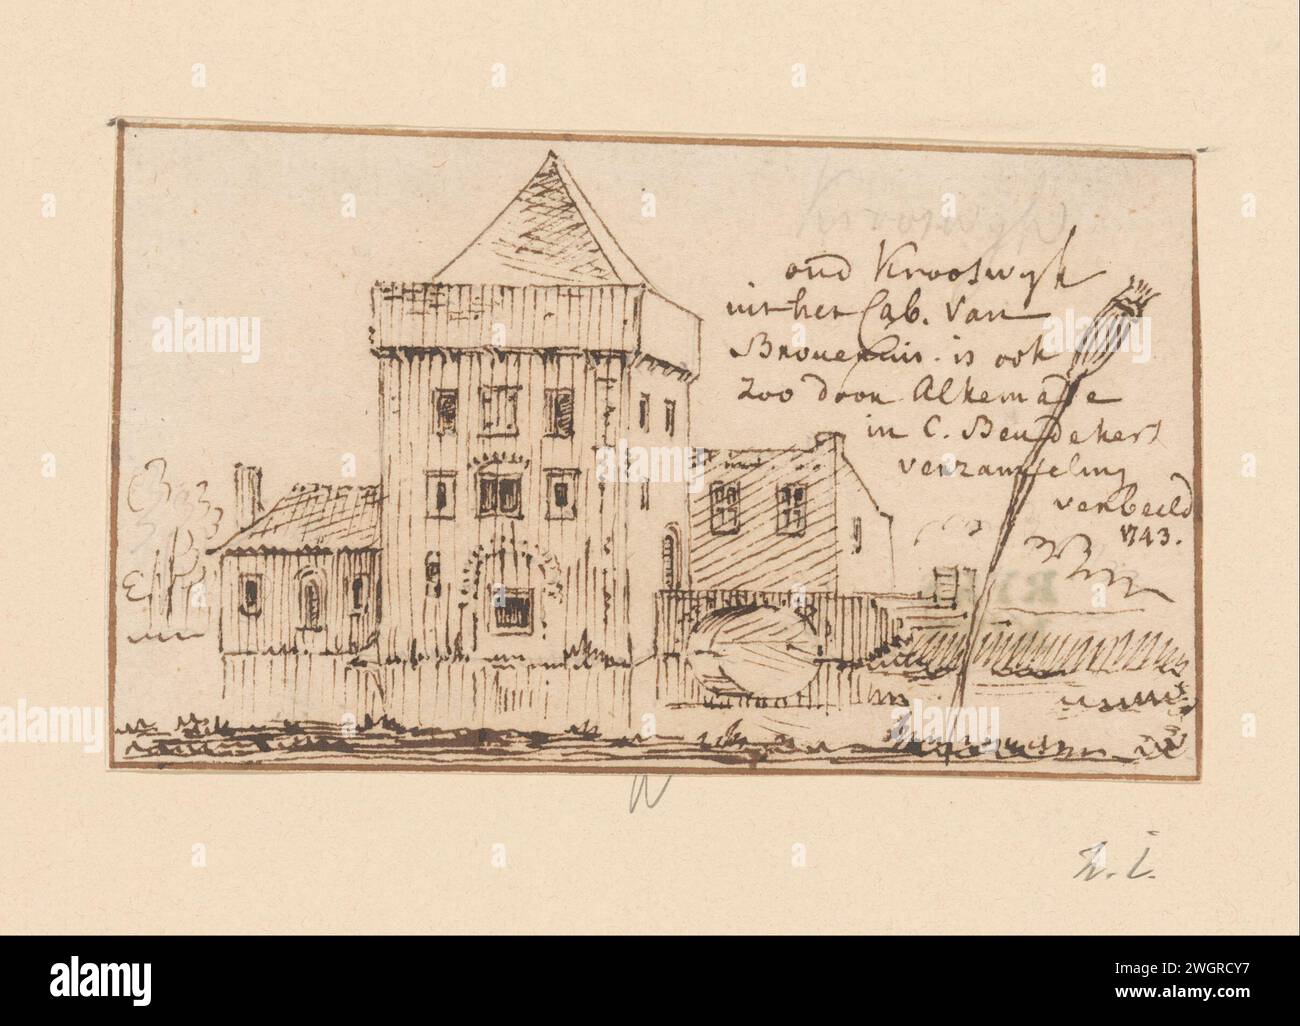 Krooswyk
oud Krooswyk
uit het Cab. van
Brouerius. is ook
zoo door Alkemade
in C. Beudekers
verzameling
verbeeld
1743.
z.i.
a alamy
alamy
Image ID: 2WGRCY7
www.alamy.com